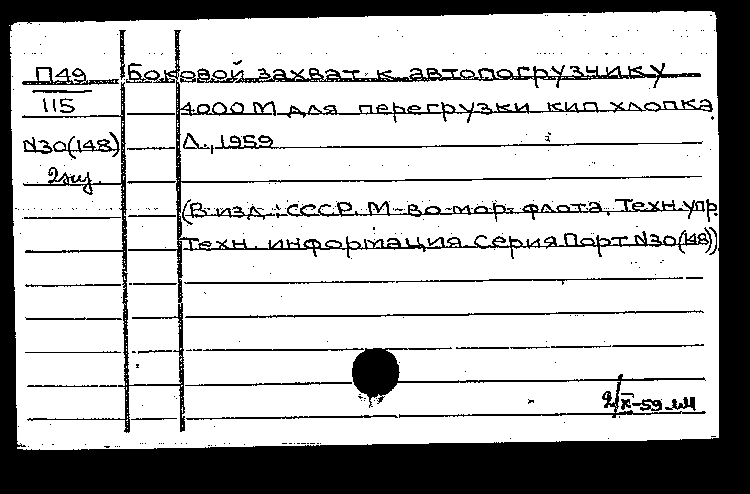 П49 Боковой захват к автопогрузчику
115 4000М для перегрузки кип хлопка.
N30(148) Л., 1959
2экз.
(В изд.: СССР. М-во мор. флота. Техн. упр.
Техн. информация. Серия Порт N30(148))
2/X-59